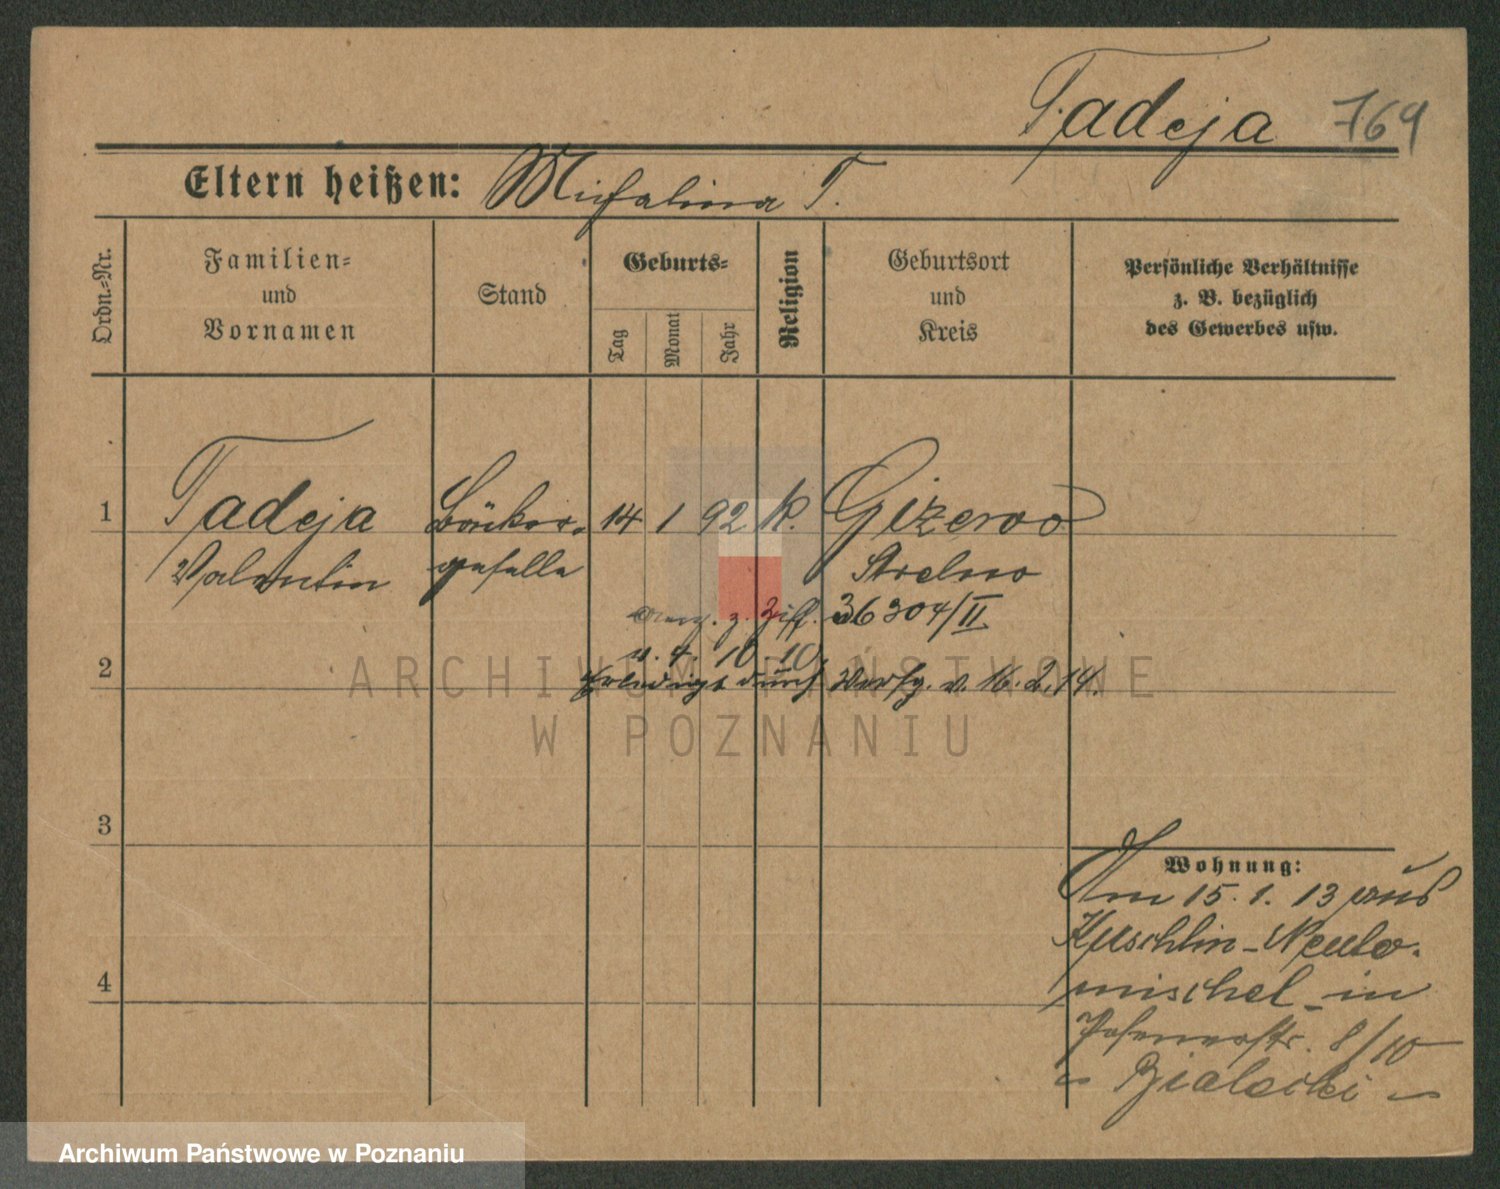 Tadeja 769
Eltern heißen: Michalina T.
Ordn.-Nr.
Familien-
und
Vornamen
Stand
Geburts-
Tag
Monat
Jahr
Religion
Geburtsort
und
Kreis
Persönliche Verhältnisse
z. B. bezüglich
des Gewerbes usw.
1 Tadeja Bäcker- 14 1 92 k. Gizewo
Valentin geselle Strelno
z. Ziff. 36304/II
v. 4. 10. 10.
2 Erledigt durch Verfg. v. 16. 2. 14.
ARCHIWUM PAŃSTWOWE
W POZNANIU
3
Wohnung:
Am 15. 1. 13 aus
Kuschlin-Neuto-
4 mischel in
Posenerstr. 8/10
Bialecki
Archiwum Państwowe w Poznaniu